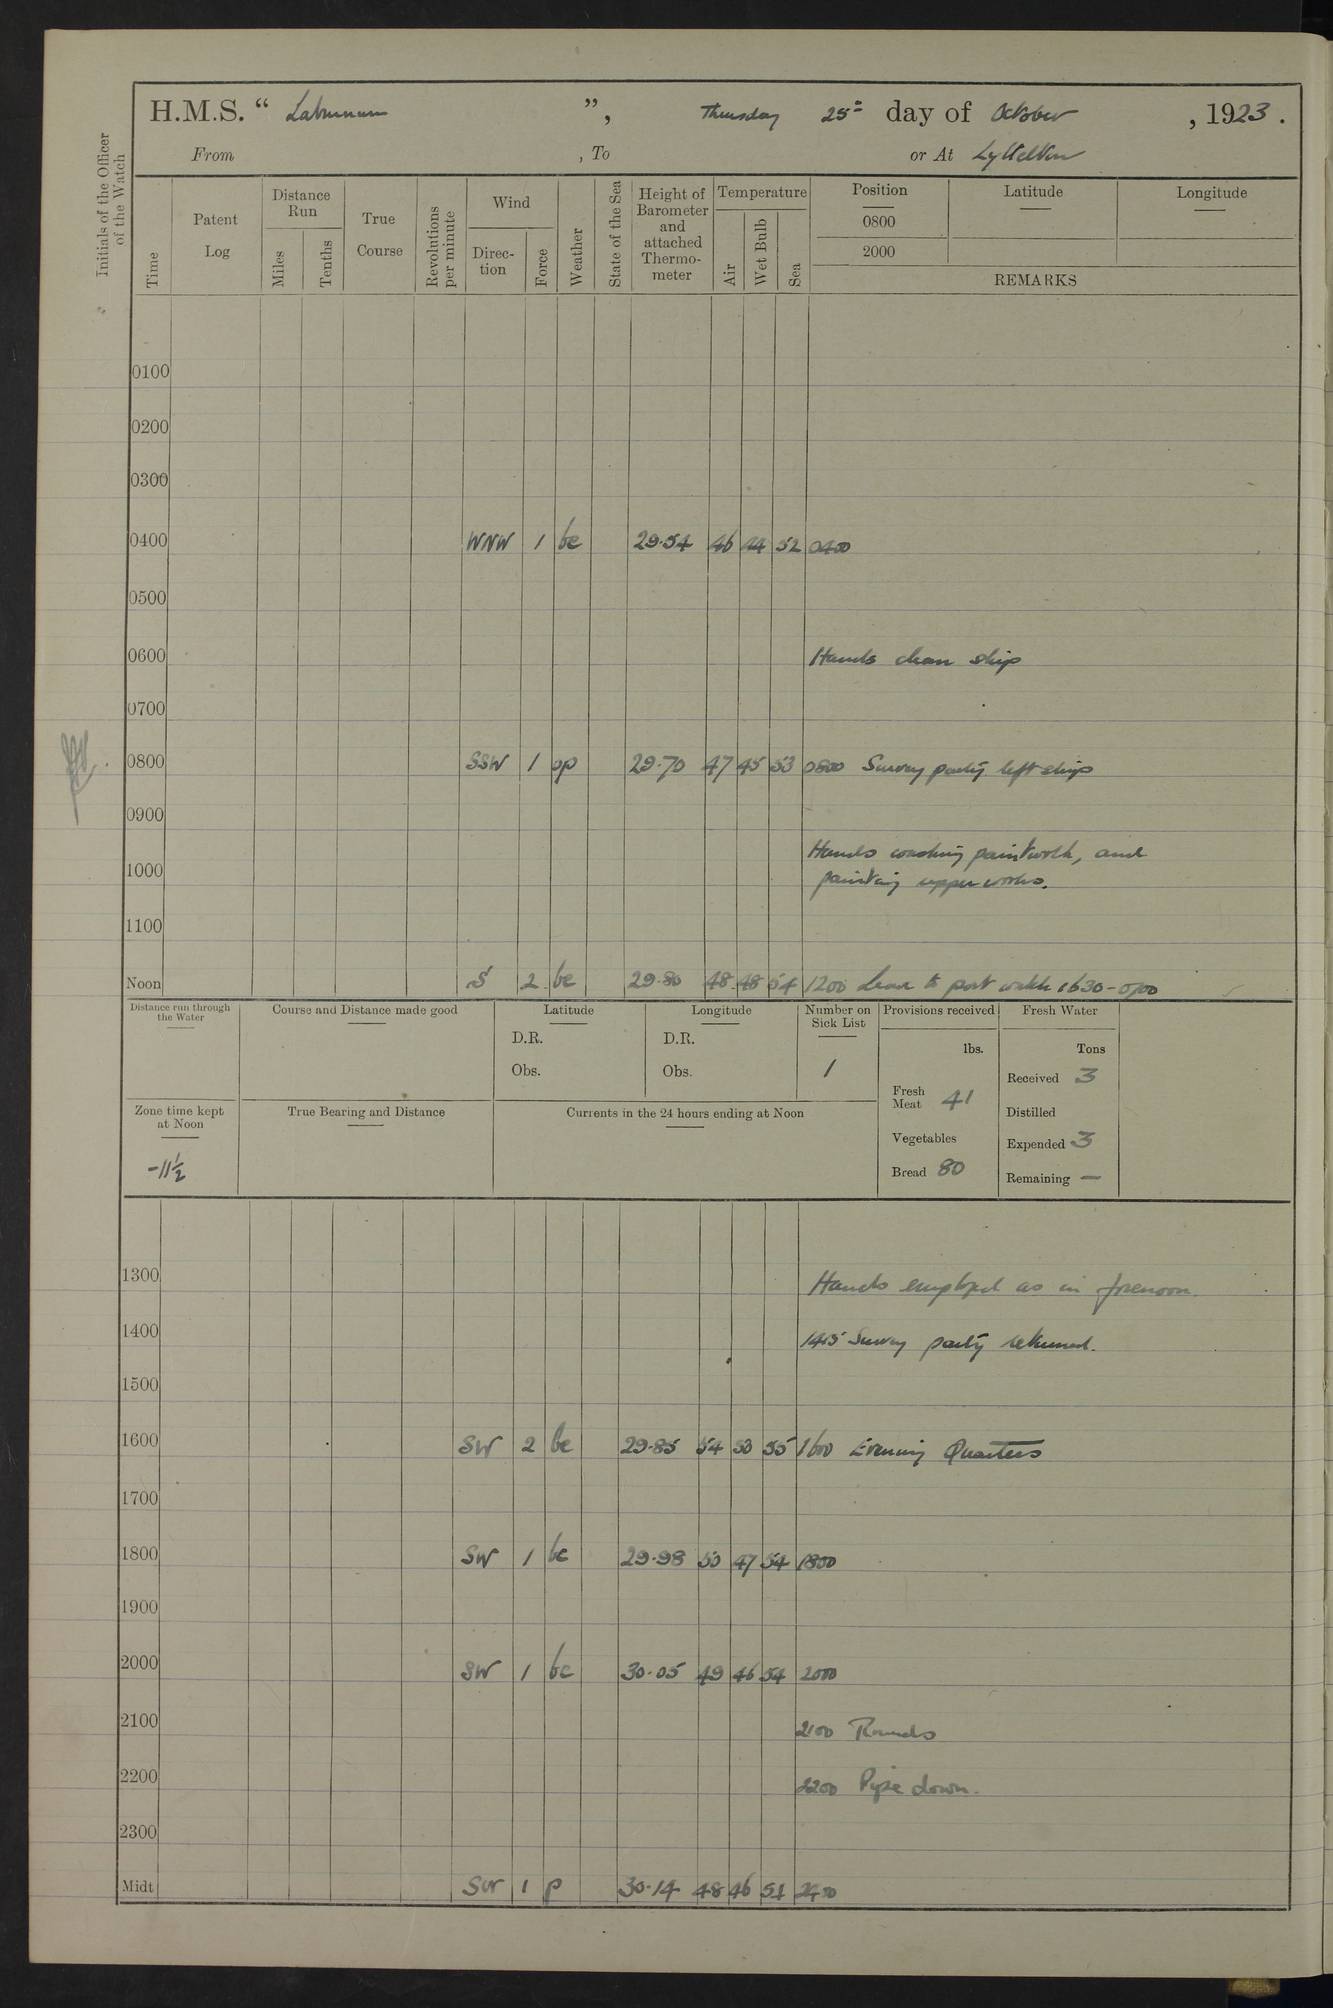 H.M.S. “ Laburnum ”, Thursday 25th day of October , 1923 .
From , To or At Lyttelton
Initials of the Officer of the Watch
Time
Patent Log
Distance Run
Miles
Tenths
True Course
Revolutions per minute
Wind
Direc-tion
Force
Weather
State of the Sea
Height of Barometer and attached Thermo-meter
Temperature
Air
Wet Bulb
Sea
Position Latitude Longitude
0800
2000
REMARKS
0100
0200
0300
0400 WNW 1 bc 29.54 46 44 52 0400
0500
0600 Hands clean ship
0700
0800 SSW 1 op 29.70 47 45 53 0800 Survey party left ship
0900
Hands washing paintwork, and
1000 painting upperworks.
1100
Noon S 2 bc 29.80 48 48 54 1200 Leave to port watch 1630-0700
Distance run through the Water
Course and Distance made good
Latitude
D.R.
Obs.
Longitude
D.R.
Obs.
Number on Sick List
1
Provisions received
lbs.
Fresh Meat 41
Vegetables
Bread 80
Fresh Water
Tons
Received 3
Distilled
Expended 3
Remaining —
Zone time kept at Noon
-11½
True Bearing and Distance
Currents in the 24 hours ending at Noon
1300 Hands employed as in forenoon.
1400 1415 Survey party returned.
1500
1600 SW 2 bc 29.85 54 50 55 1600 Evening Quarters
1700
1800 SW 1 bc 29.98 50 47 54 1800
1900
2000 SW 1 bc 30.05 49 46 54 2000
2100 2100 Rounds
2200 2200 Pipe down.
2300
Midt SW 1 p 30.14 48 46 51 2400